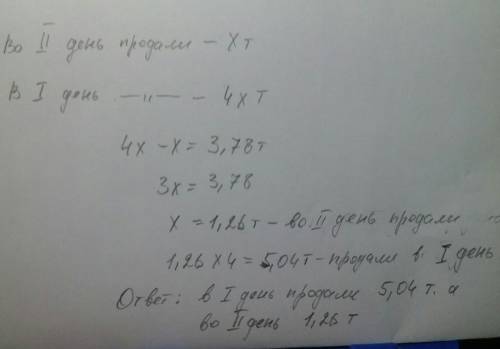 Во II день продали – Xт
В I день —"— – 4x т
4x – x = 3,78т
3x = 3,78
x = 1,26 т – во II день продали
1,26 x 4 = 5,04т – продали в I день
Ответ: в I день продали 5,04 т. а
во II день 1,26 т